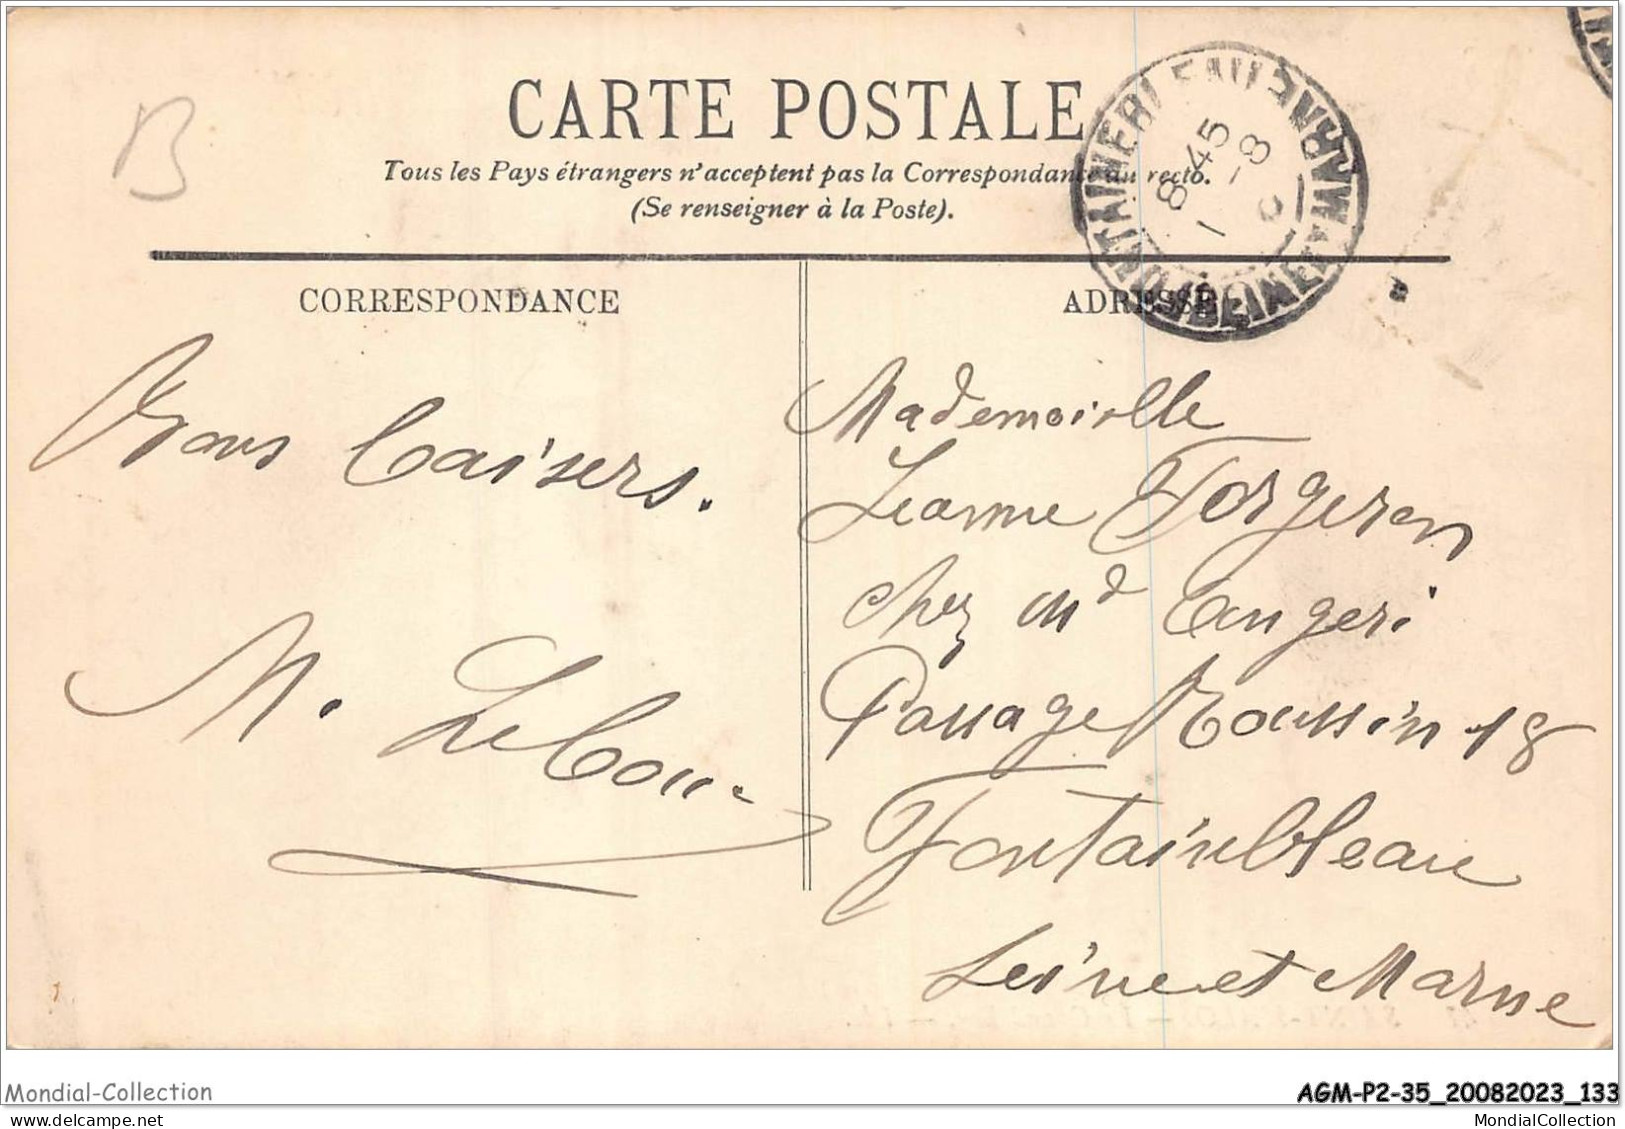 B
CARTE POSTALE
Tous les Pays étrangers n'acceptent pas la Correspondance au recto.
(Se renseigner à la Poste).
FONTAINEBLEAU
8 45
-8
SEINE ET MARNE
CORRESPONDANCE
ADRESSE
Bons baisers.
M. Lebon
Mademoiselle
Jeanne Forgeron
chez Md
Passage Roussin 18
Fontainebleau
Seine et Marne
Mondial-Collection
AGM-P2-35_20082023_133
MondialCollection